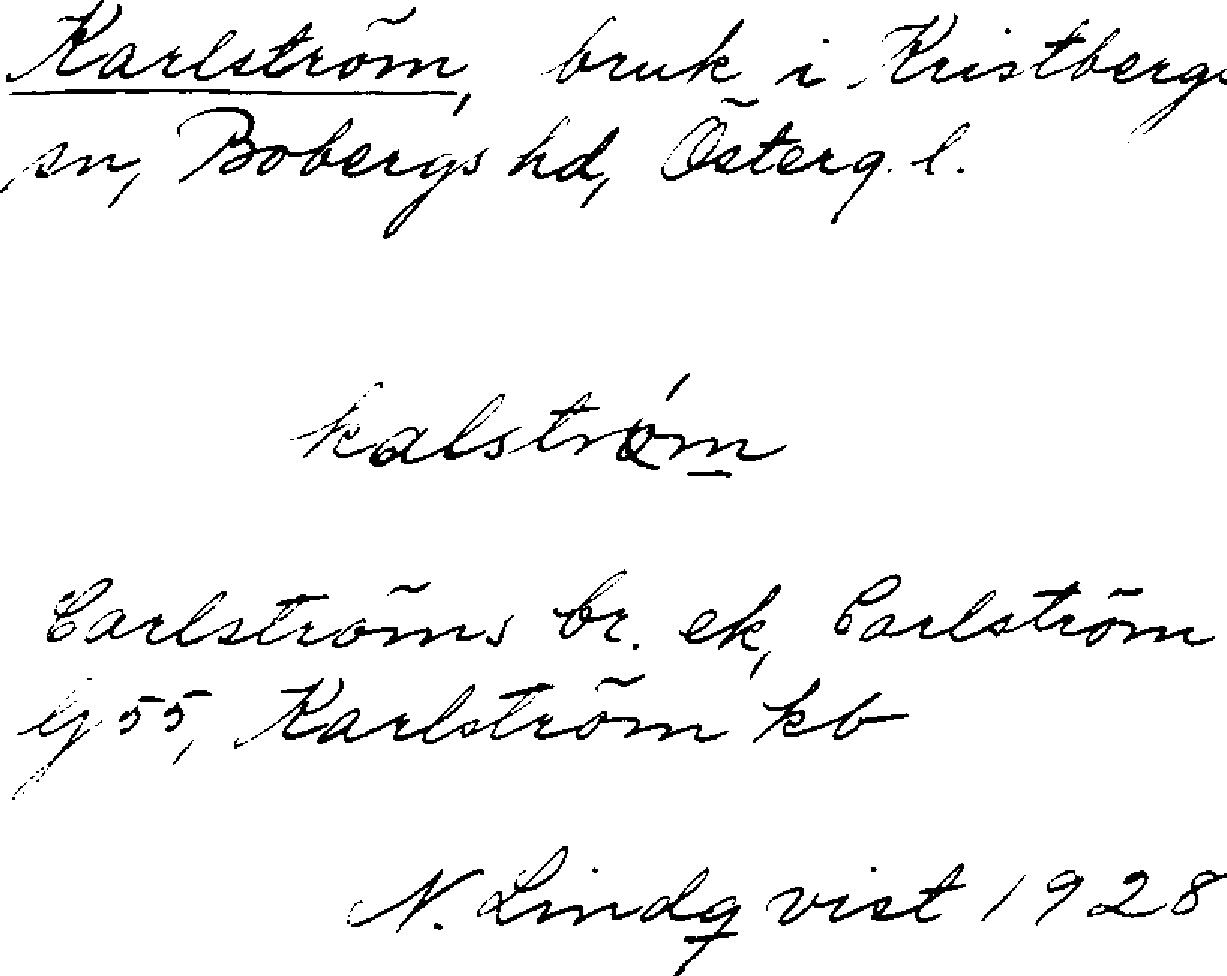 Karlström, bruk i Kristbergs
sn, Bobergs hd, Österg. l.
kalstrǿm
Carlströms br. ek, Carlström
lj 55, Karlström kb
N. Lindqvist 1928